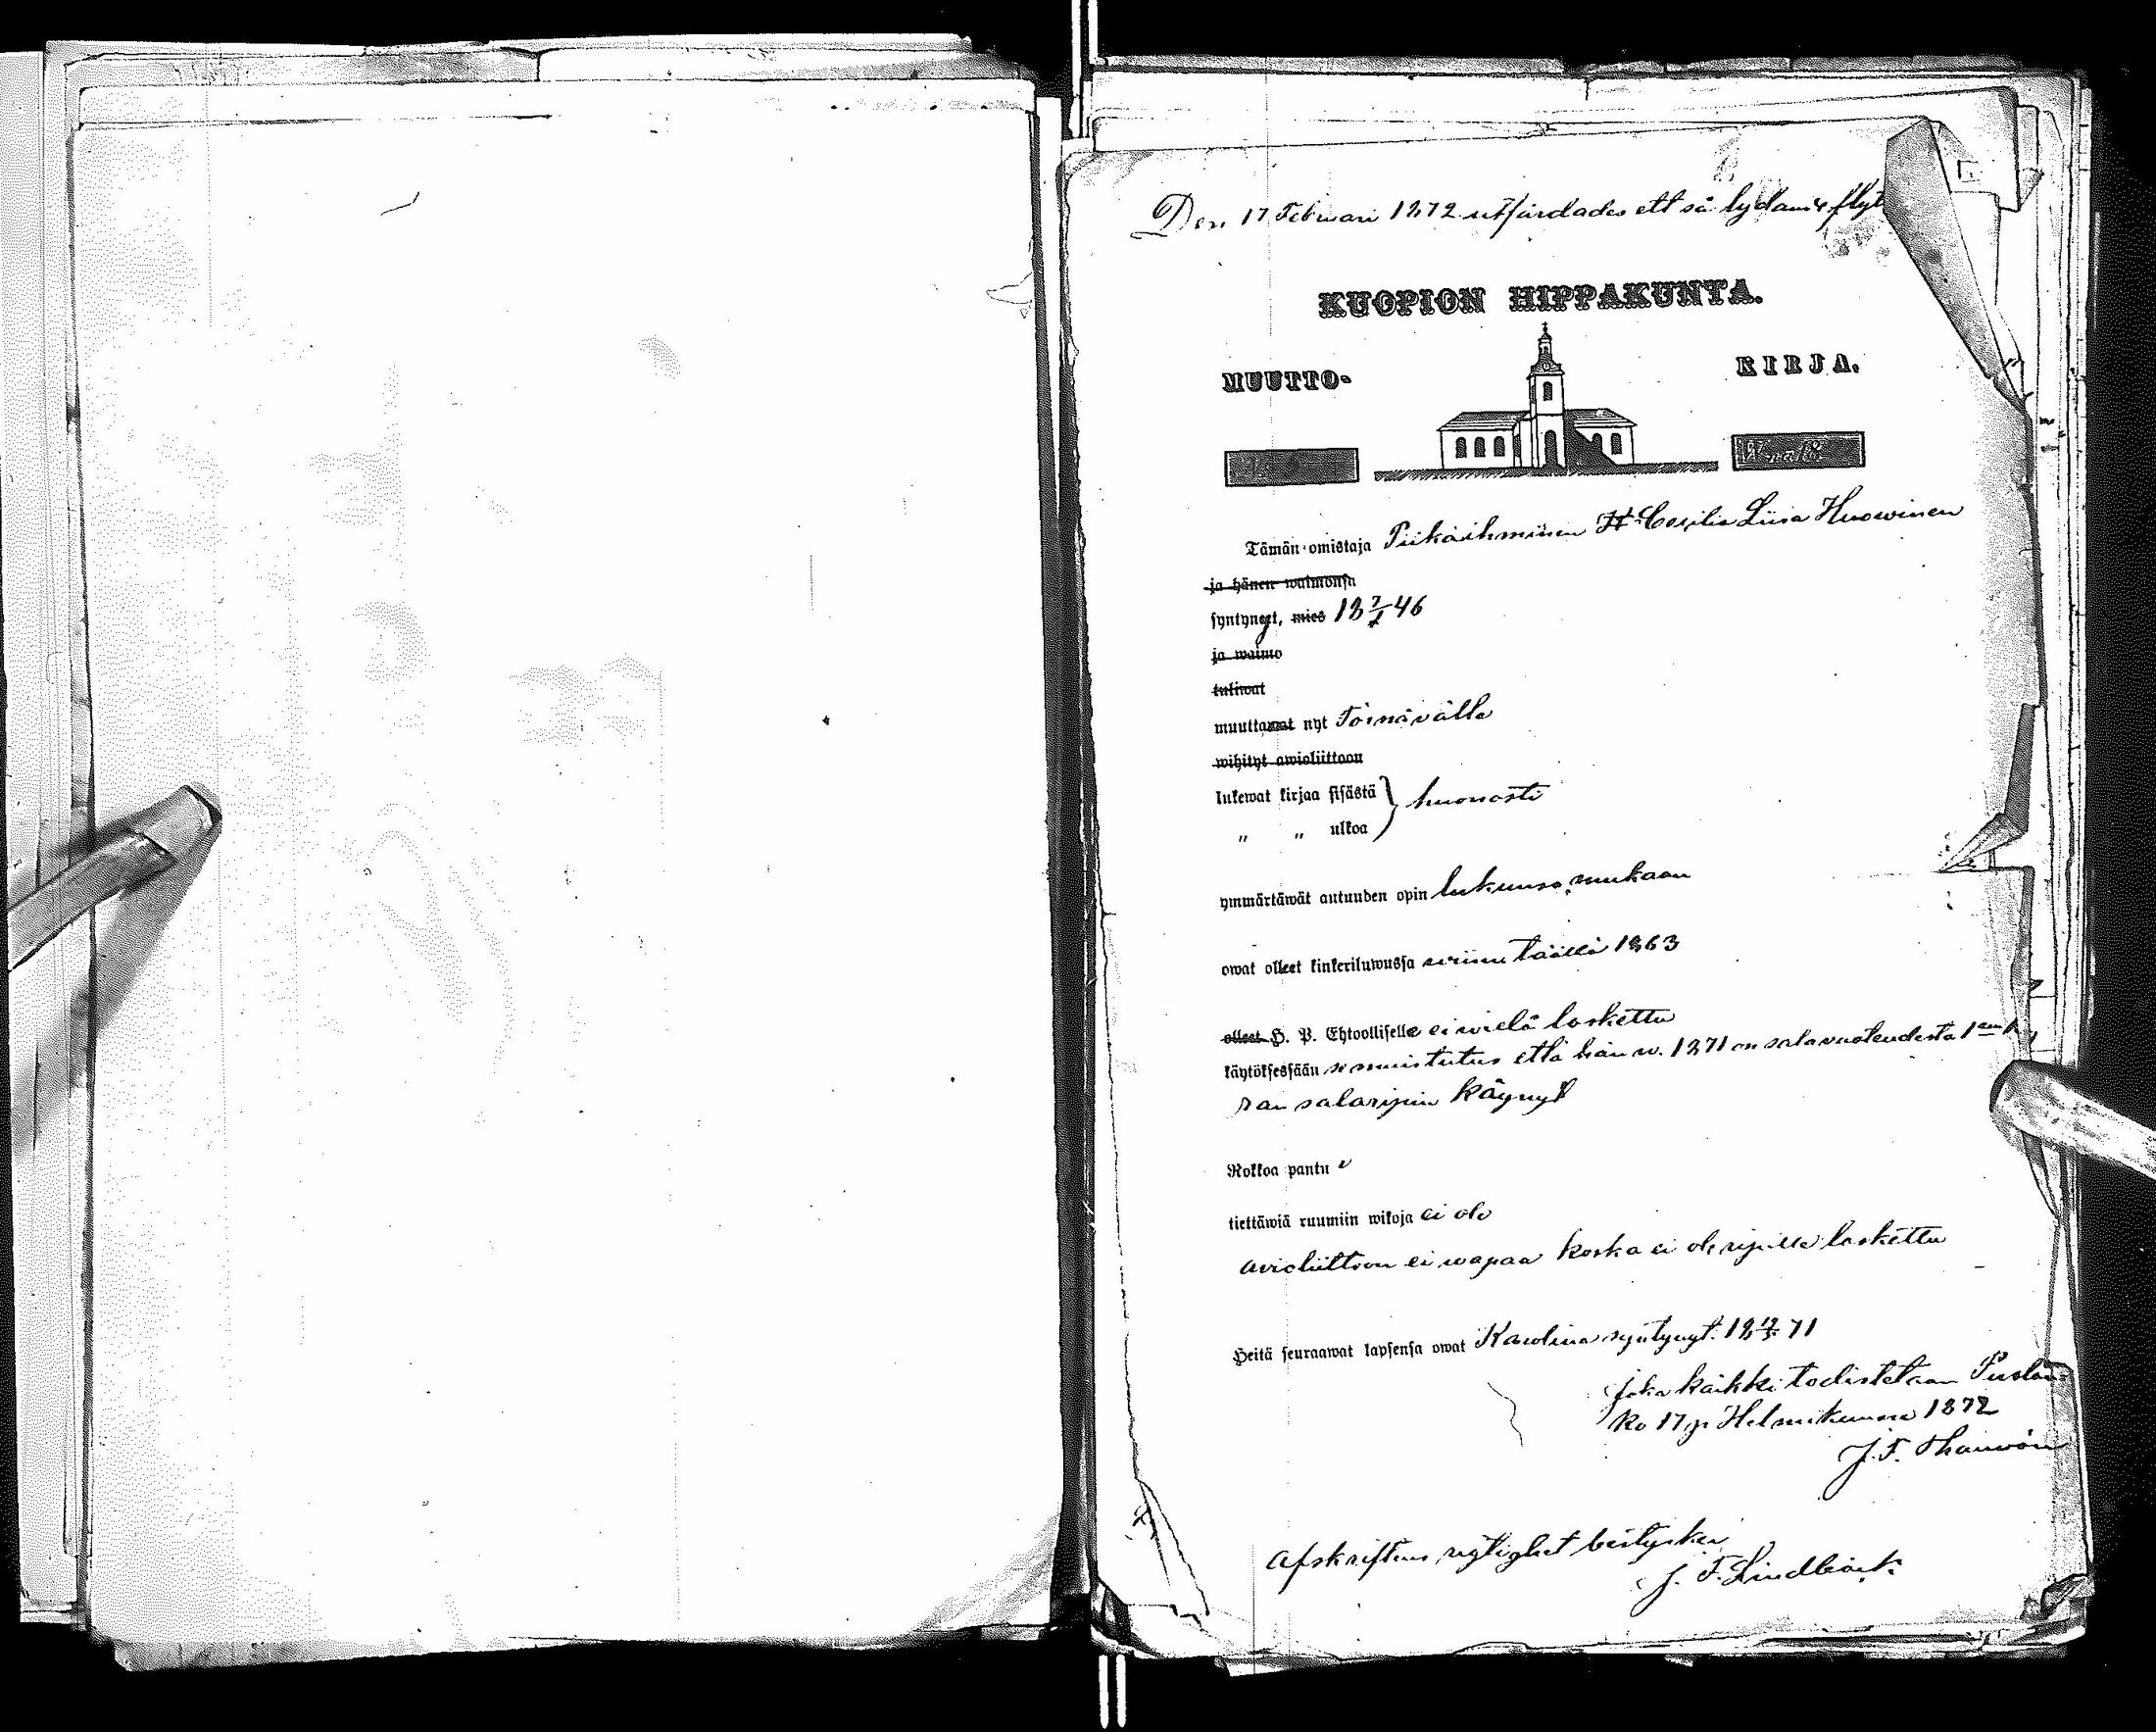 Den 17 Februari 1872 utfärdades ett så lydande flyt
KUOPION HIPPAKUNTA.
MUUTTO- KIRJA.
Tämän omistaja Piikaihminen Cecilia Liisa Huowinen
ja hänen waimonsa
syntynyt, mies 18 7/1 46
ja waimo
tuliwat
muuttawat nyt Törnävälle
wihityt awioliittoon
lukewat kirjaa sisästä } huonosti
„ „ ulkoa
ymmärtäwät autuuden opin lukunsa mukaan
owat olleet kinkeriluwussa wiimen täällä 1863
olleet H. P. Ehtoollisella ei wielä laskettu
käytöksessään se muistutus että hän w. 1871 on salavuoteudesta 1
ran salaripin käynyt
Rokkoa pantu
tiettäwiä ruumiin wikoja ei ole
avioliittoon ei wapaa koska ei ole ripille laskettu
Heitä seuraawat lapsensa owat Karolina syntynyt. 71
joka kaikki todistetaan Puolan-
ko 17 p. Helmikuussa 1872
J. F. Thauvón
Afskriftens rigtighet bestyrker
J. F. Lindbäck